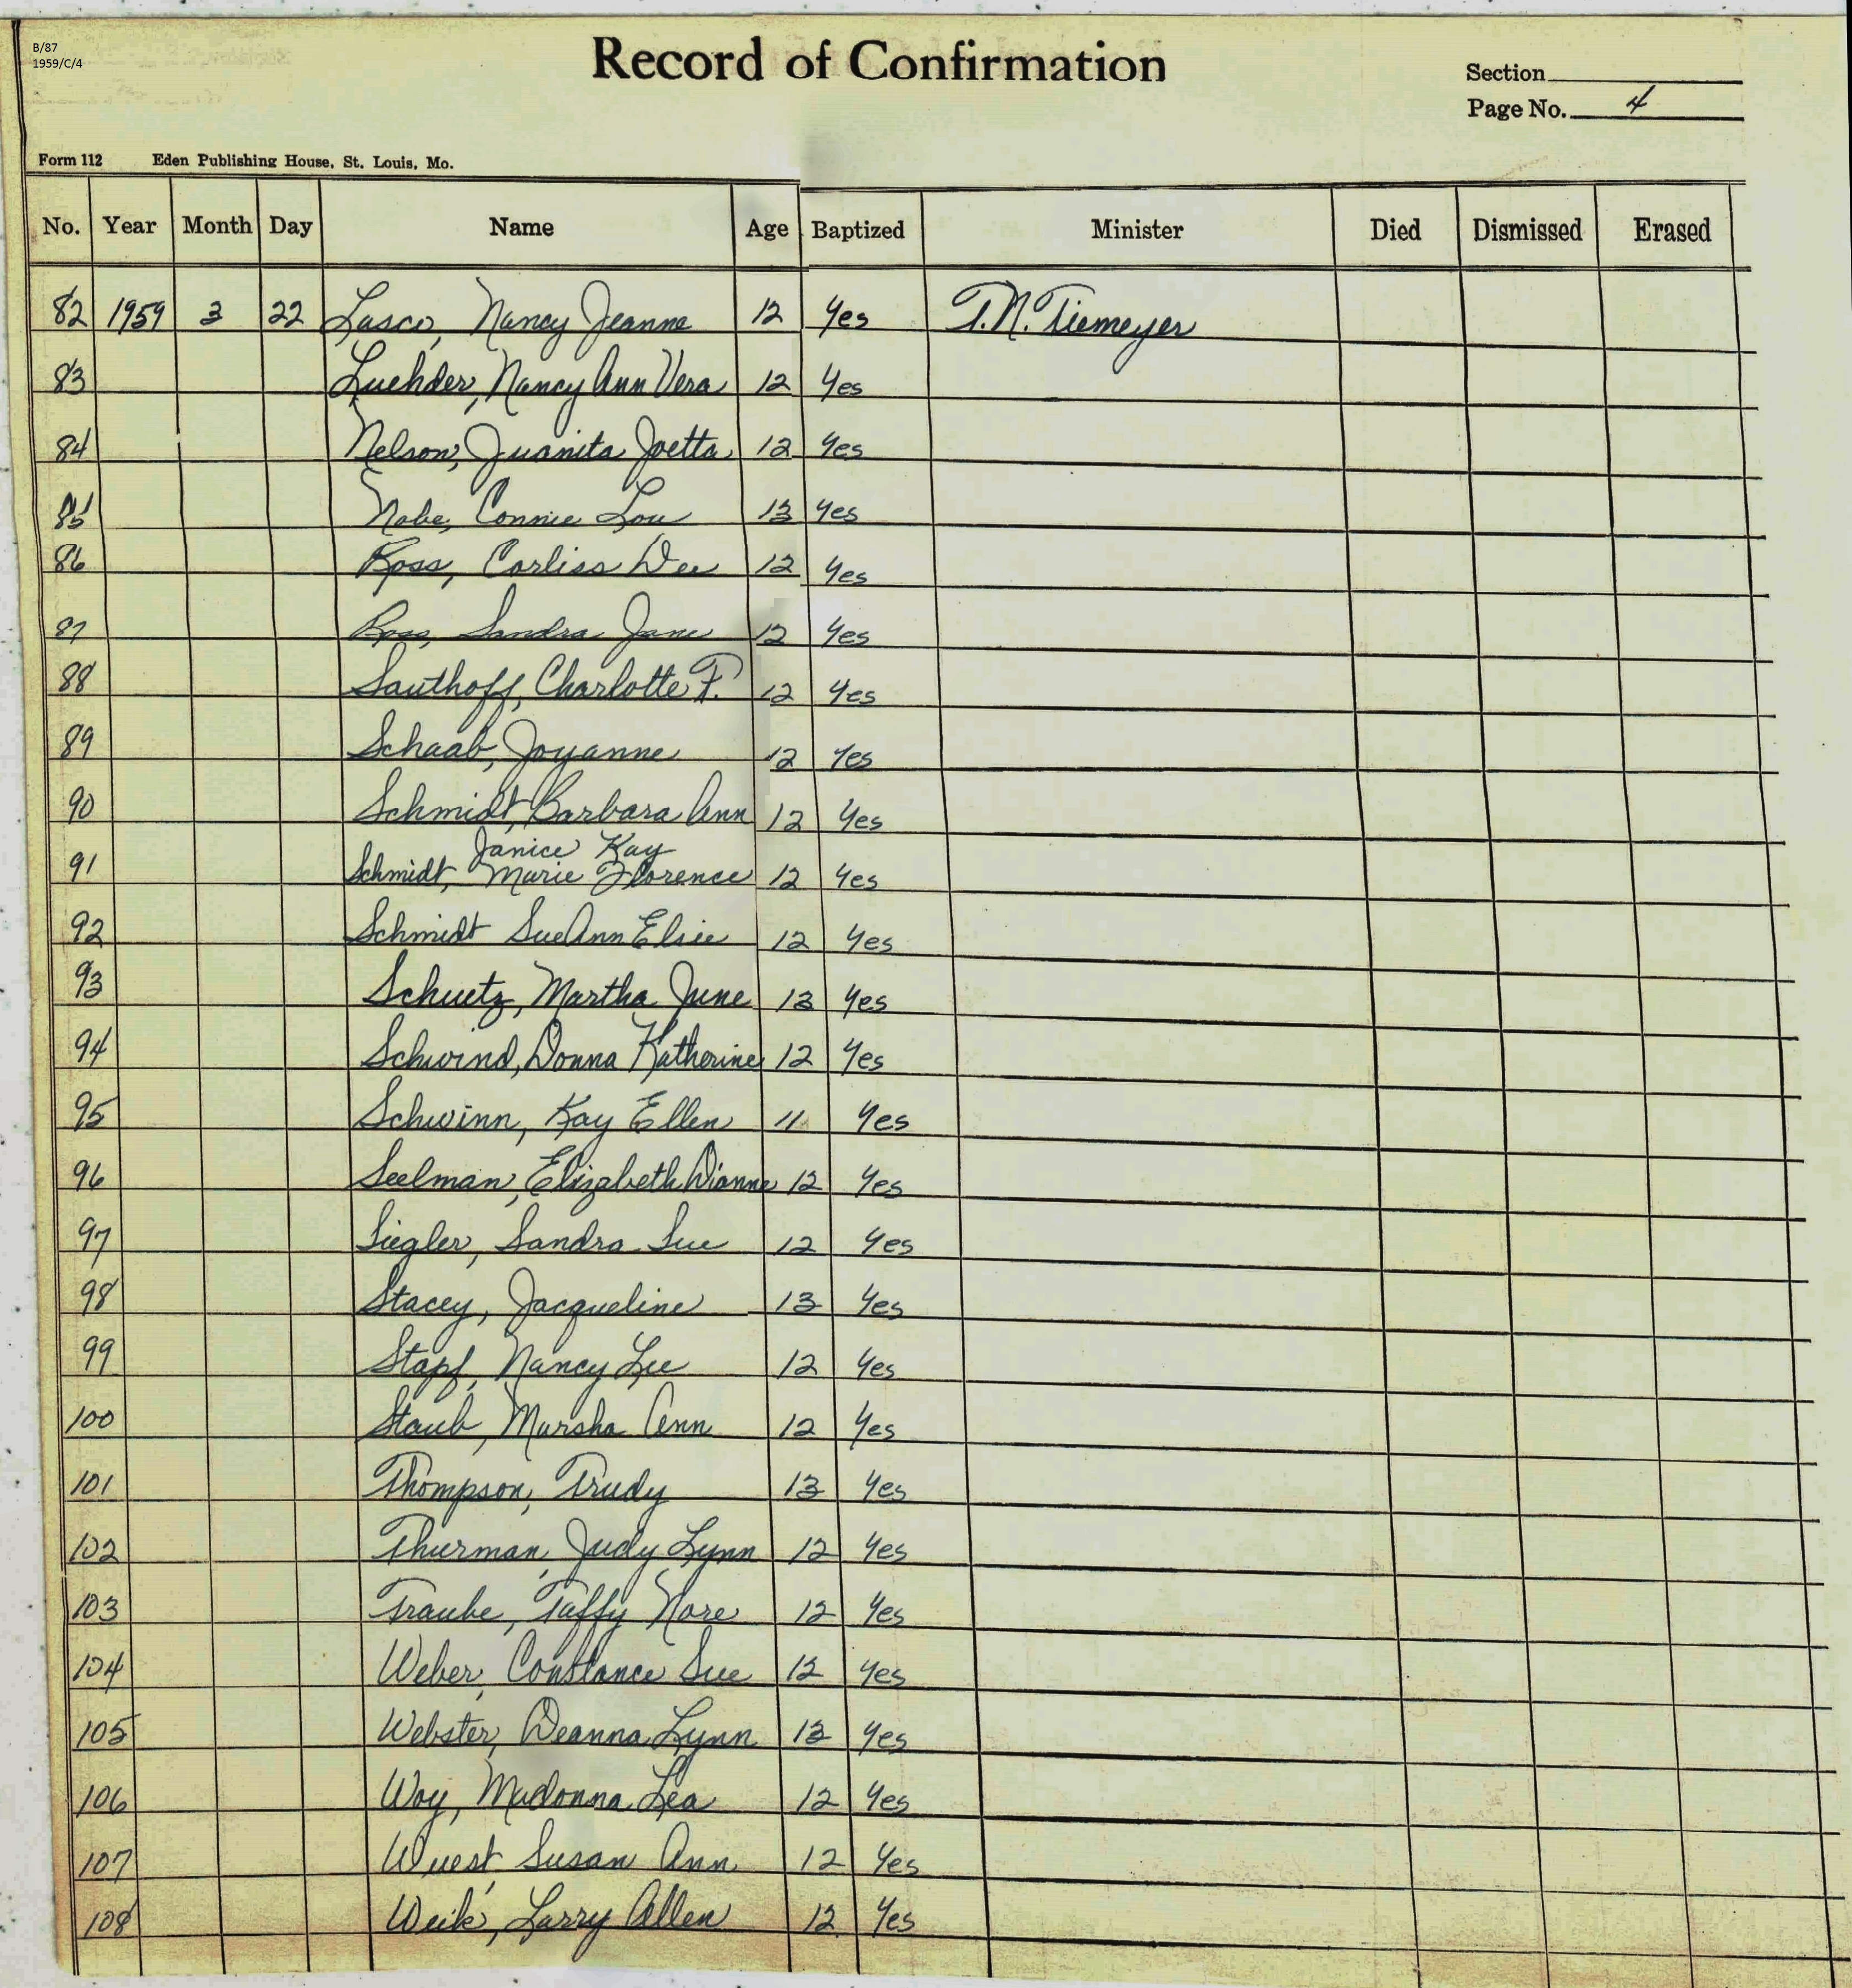 B/87
1959/C/4
Record of Confirmation
Section
Page No. 4
Form 112 Eden Publishing House, St. Louis, Mo.
No. Year Month Day Name Age Baptized Minister Died Dismissed Erased
82 1959 3 22 Lasco, Nancy Jeanne 12 Yes T.N. Tiemeyer
83 Luehder, Nancy Ann Vera 12 Yes
84 Nelson, Juanita Joetta 12 Yes
85 Nobe, Connie Lou 13 Yes
86 Ross, Corliss Dee 12 Yes
87 Ross, Sandra Jane 12 Yes
88 Sauthoff, Charlotte F. 12 Yes
89 Schaab, Joyanne 12 Yes
90 Schmidt, Barbara Ann 12 Yes
Janice Kay
91 Schmidt, Marie Florence 12 Yes
92 Schmidt SueAnn Elsie 12 Yes
93 Schuetz, Martha June 13 Yes
94 Schwind, Donna Katherine 12 Yes
95 Schwinn, Kay Ellen 11 Yes
96 Seelman, Elizabeth Dianne 12 Yes
97 Siegler, Sandra Sue 12 Yes
98 Stacey, Jacqueline 13 Yes
99 Stapf, Nancy Lee 12 Yes
100 Staub, Marsha Ann 12 Yes
101 Thompson, Trudy 13 Yes
102 Thurman, Judy Lynn 12 Yes
103 Traube, Taffy Nore 12 Yes
104 Weber, Constance Sue 12 Yes
105 Webster, Deanna Lynn 13 Yes
106 Woy, Madonna Lea 12 Yes
107 Wuest, Susan Ann 12 Yes
108 Weik, Larry Allen 12 Yes